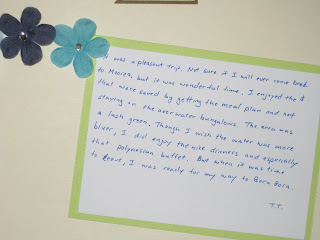 It was a pleasant trip. Not sure if I will ever come back
to Moorea, but it was wonderful time. I enjoyed the $
that were saved by getting the meal plan and not
staying on the overwater bungalows. The area was
a lush green. Though I wish the water was more
bluer, I did enjoy the nice dinners and especially
that polynesian buffet. But when it was time
to leave, I was ready for my way to Bora Bora.
T.T.